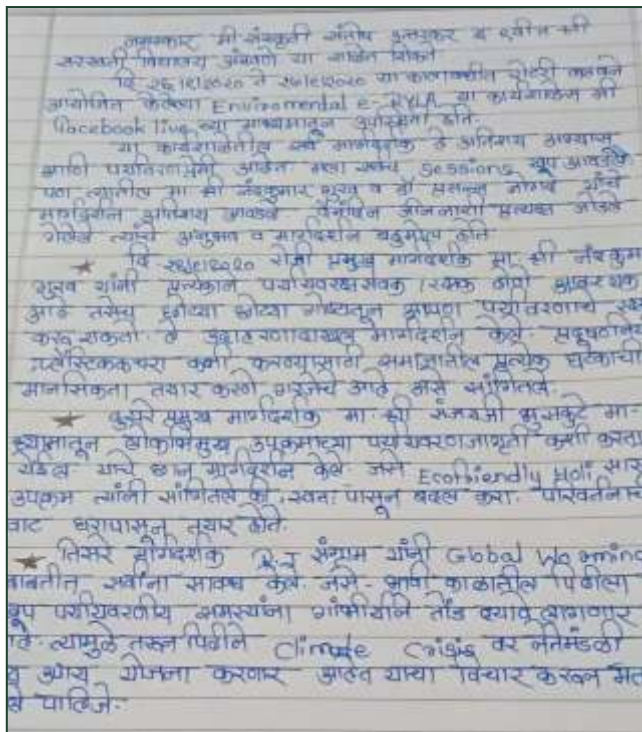 नमस्कार मी संस्कृती संतोष इ ९वीत श्री
सरस्वती विद्यालय या शाळेत शिकते
दि २६।८।२०२० ते या कालावधीत रोटरी क्लबने
आयोजित केलेल्या Enviromental e-RYLA या कार्यशाळेस मी
Facebook live च्या माध्यमातून उपस्थित होते.
या कार्यशाळेतील सर्व मार्गदर्शक हे अतिशय अभ्यासू
आणि पर्यावरणप्रेमी आहेत मला सर्वच sessions खूप आवडले
पण त्यातील मा श्री नंदकुमार व डॉ प्रसन्न यांचे
मार्गदर्शन अतिशय आवडले जीवनाशी प्रत्यक्ष जोडले
गेलेले त्यांचे अनुभव व मार्गदर्शन बहुमूल्य होते
★ दि रोजी प्रमुख मार्गदर्शक मा. श्री नंदकुम
यांनी प्रत्येकाने होणे आवश्यक
आहे तसेच छोट्या छोट्या गोष्टीतून आपण पर्यावरणाचे
करू शकतो. हे उदाहरणादाखल मार्गदर्शन केले.
प्लॅस्टिककचरा कमी करण्यासाठी समाजातील प्रत्येक घटकाची
मानसिकता तयार करणे गरजेचे आहे असे सांगितले.
★ दुसरे प्रमुख मार्गदर्शक मा. श्री संजयजी भुसकुटे
लोकाभिमुख उपक्रमाच्या पर्यावरणजागृती कशी करता
येईल याचे छान मार्गदर्शन केले. जसे Ecofriendly Holi सार
उपक्रम त्यांनी सांगितले की, स्वतः पासून बदल करा.
वाट घरापासून तयार होते.
★ तिसरे मार्गदर्शक R.J संग्राम यांनी Global Warming
बाबतीत सर्वांना सावध केले. जसे- भावी काळातील पिढीला
खूप पर्यावरणीय समस्यांना गांभीर्याने तोंड द्यावे लागणार
आहे. त्यामुळे तरुण पिढीने Climate Crisis वर नेतेमंडळी
उपाय योजना करणार आहेत याचा विचार करून मत
पाहिजे.